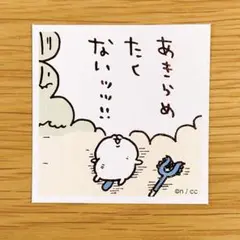 あきらめ
たく
ないッッ!!
©n/cc